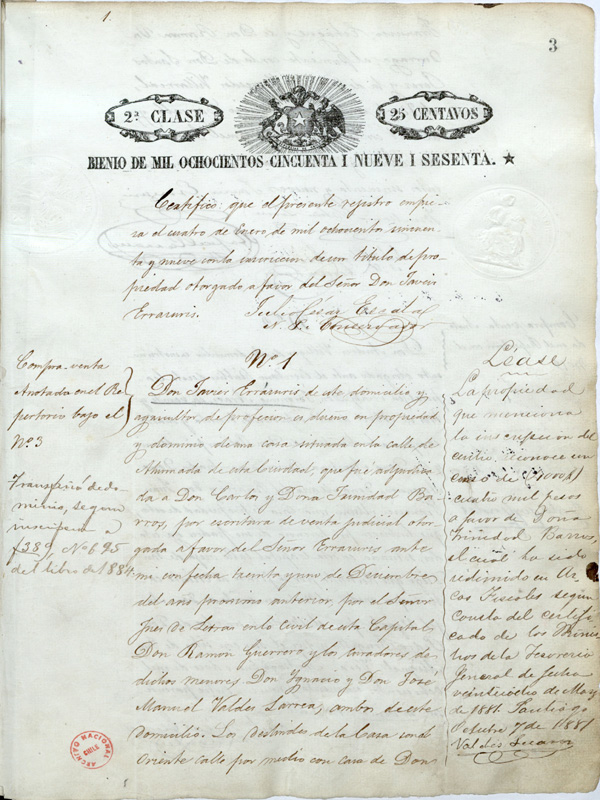 1.
3
2ª CLASE
25 CENTAVOS
BIENIO DE MIL OCHOCIENTOS CINCUENTA I NUEVE I SESENTA. ★
Certifico: que el presente registro empie-
za el cuatro de Enero de mil ochocientos cincuen-
ta y nueve con la inscripcion de un titulo de pro-
piedad otorgado a favor del Señor Don Javier
Errazuris. Julio César Escala
N. P. Conservador
Nº 1
Compra-venta
Anotada en el Re-
pertorio bajo el
Nº 3
Transfirió el do-
minio, segun
inscripcion a
f 389 Nº 695
del libro de 1884
Don Javier Errázuris de este domicilio y
agricultor de profesion es dueño en propiedad
y dominio de una casa situada en la calle de
Ahumada de esta Ciudad, que fué adjudica-
da a Don Carlos y Doña Trinidad Ba-
rros, por escritura de venta judicial otor-
gada a favor del Señor Errazuris ante
mi con fecha treinta y uno de Diciembre
del año proximo anterior, por el Señor
Juez de Letras en lo civil de esta Capital
Don Ramon Guerrero y los curadores de
dichos menores Don Ignacio y Don José
Manuel Valdes Larrea, ambos de este
domicilio. Los deslindes de la Casa son: al
Oriente calle por medio con casa de Don
Lease
La propiedad
que menciona
la inscripcion del
centro, reconoce un
censo de
cuatro mil pesos
a favor de Doña
Trinidad Barros,
el cual ha sido
redimido en Ar-
cas Fiscales segun
consta del certifi-
cado de los Minis-
tros de la Tesoreria
Jeneral de fecha
veintiocho de Mayo
de 1881. Santiago
Octubre 7 de 1881
Valdes
ARCHIVO NACIONAL
CHILE